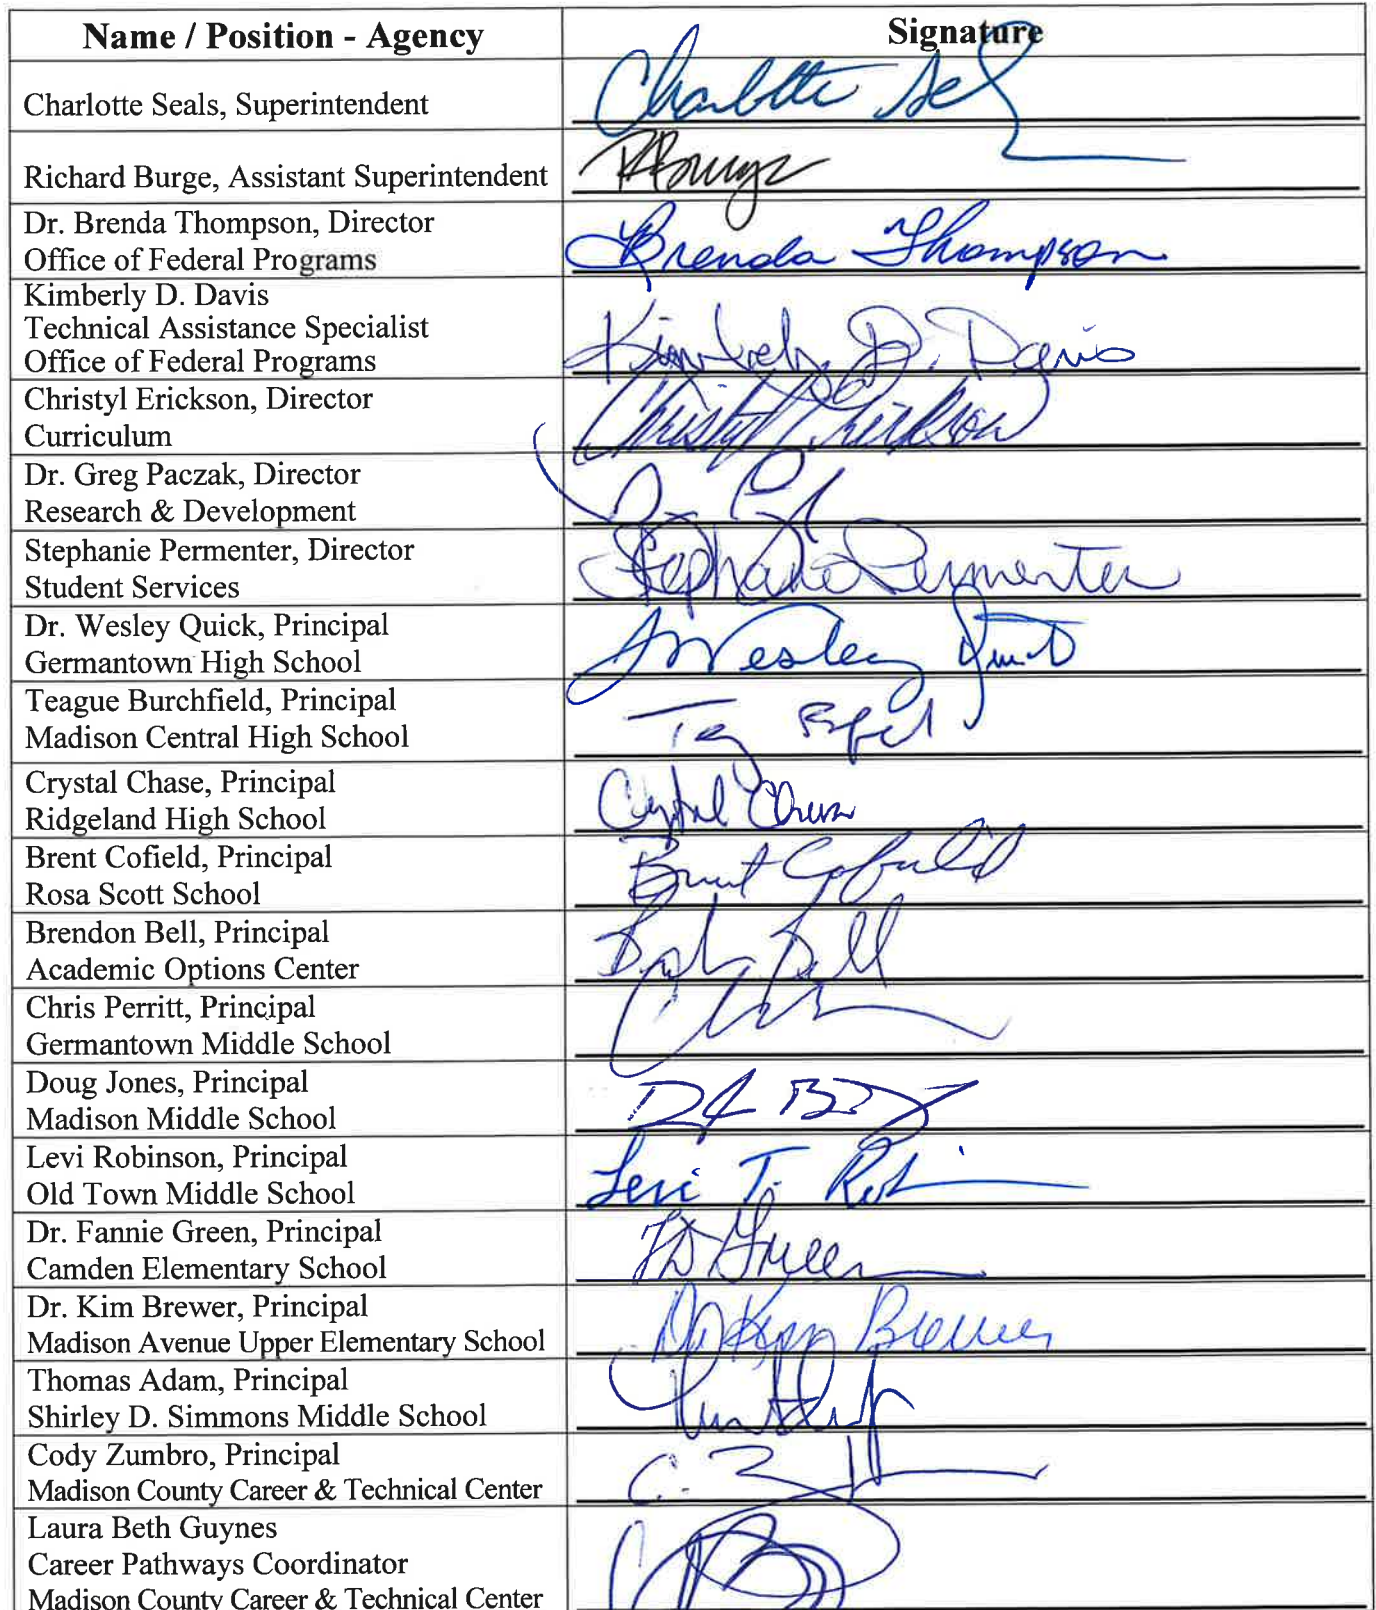 Name / Position - Agency
Signature
Charlotte Seals, Superintendent
Charlotte Sels
Richard Burge, Assistant Superintendent
RBurge
Dr. Brenda Thompson, Director
Office of Federal Programs
Brenda Thompson
Kimberly D. Davis
Technical Assistance Specialist
Office of Federal Programs
Kimberly D. Davis
Christyl Erickson, Director
Curriculum
Christyl Erickson
Dr. Greg Paczak, Director
Research & Development
Stephanie Permenter, Director
Student Services
Stephanie Permenter
Dr. Wesley Quick, Principal
Germantown High School
Wesley Quick
Teague Burchfield, Principal
Madison Central High School
Crystal Chase, Principal
Ridgeland High School
Crystal Chase
Brent Cofield, Principal
Rosa Scott School
Brent Cofield
Brendon Bell, Principal
Academic Options Center
Bell
Chris Perritt, Principal
Germantown Middle School
Doug Jones, Principal
Madison Middle School
Levi Robinson, Principal
Old Town Middle School
Levi T.
Dr. Fannie Green, Principal
Camden Elementary School
FD Green
Dr. Kim Brewer, Principal
Madison Avenue Upper Elementary School
Dr Kim Brewer
Thomas Adam, Principal
Shirley D. Simmons Middle School
Cody Zumbro, Principal
Madison County Career & Technical Center
C.
Laura Beth Guynes
Career Pathways Coordinator
Madison County Career & Technical Center